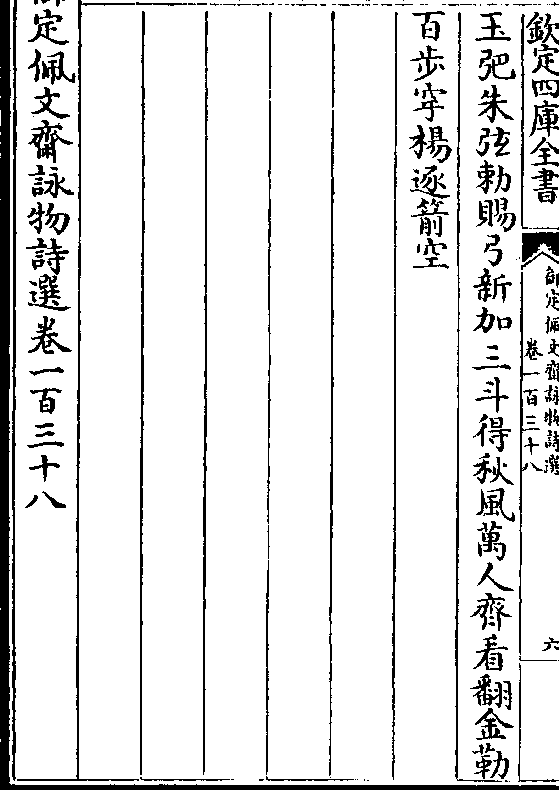 欽定四庫全書
御定佩文齋詠物詩選
卷一百三十八
六
玉弝朱弦勅賜弓新加三斗得秋風萬人齊看翻金勒
百歩穿楊逐箭空
御定佩文齋詠物詩選卷一百三十八